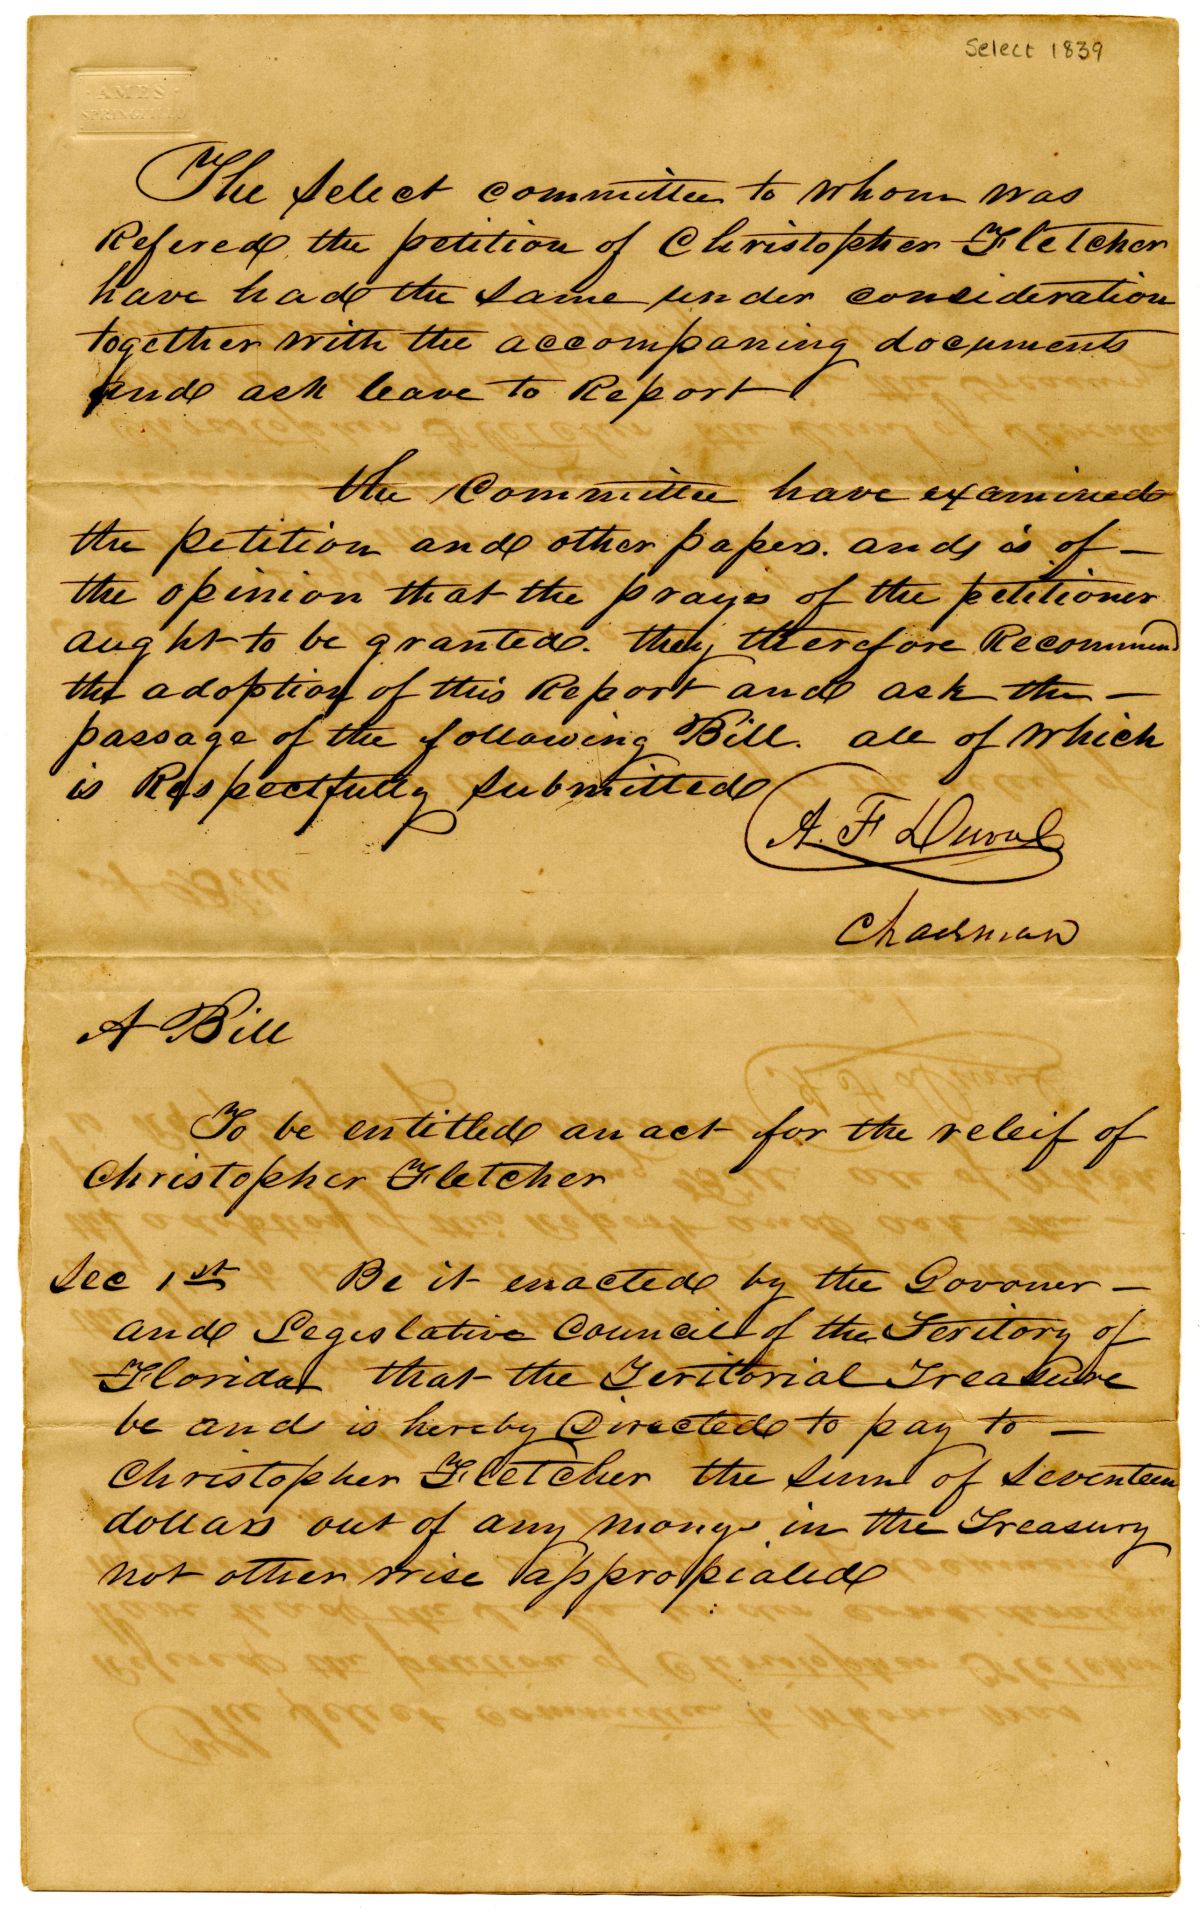 Select 1839
AMES
SPRINGFIELD
The Select committee to whom was
Refered the petition of Christopher Fletcher
have had the same under consideration
together with the accompaning documents
and ask leave to Report
the Committee have examined
the petition and other papers. and is of –
the opinion that the prayer of the petitioner
aught to be granted. they therefore Recommend
the adoption of this Report and ask the –
passage of the following Bill. all of which
is Respectfully submitted
A. F Duval
Chairman
A Bill
To be entitled an act for the releif of
Christopher Fletcher
Sec 1st Be it enacted by the Govoner –
and Legislative Council of the Teritory of
Florida that the Teritorial Treasure
be and is hereby Directed to pay to –
Christopher Fletcher the sum of seventeen
dollars out of any mony in the Treasury
not other wise appropiated